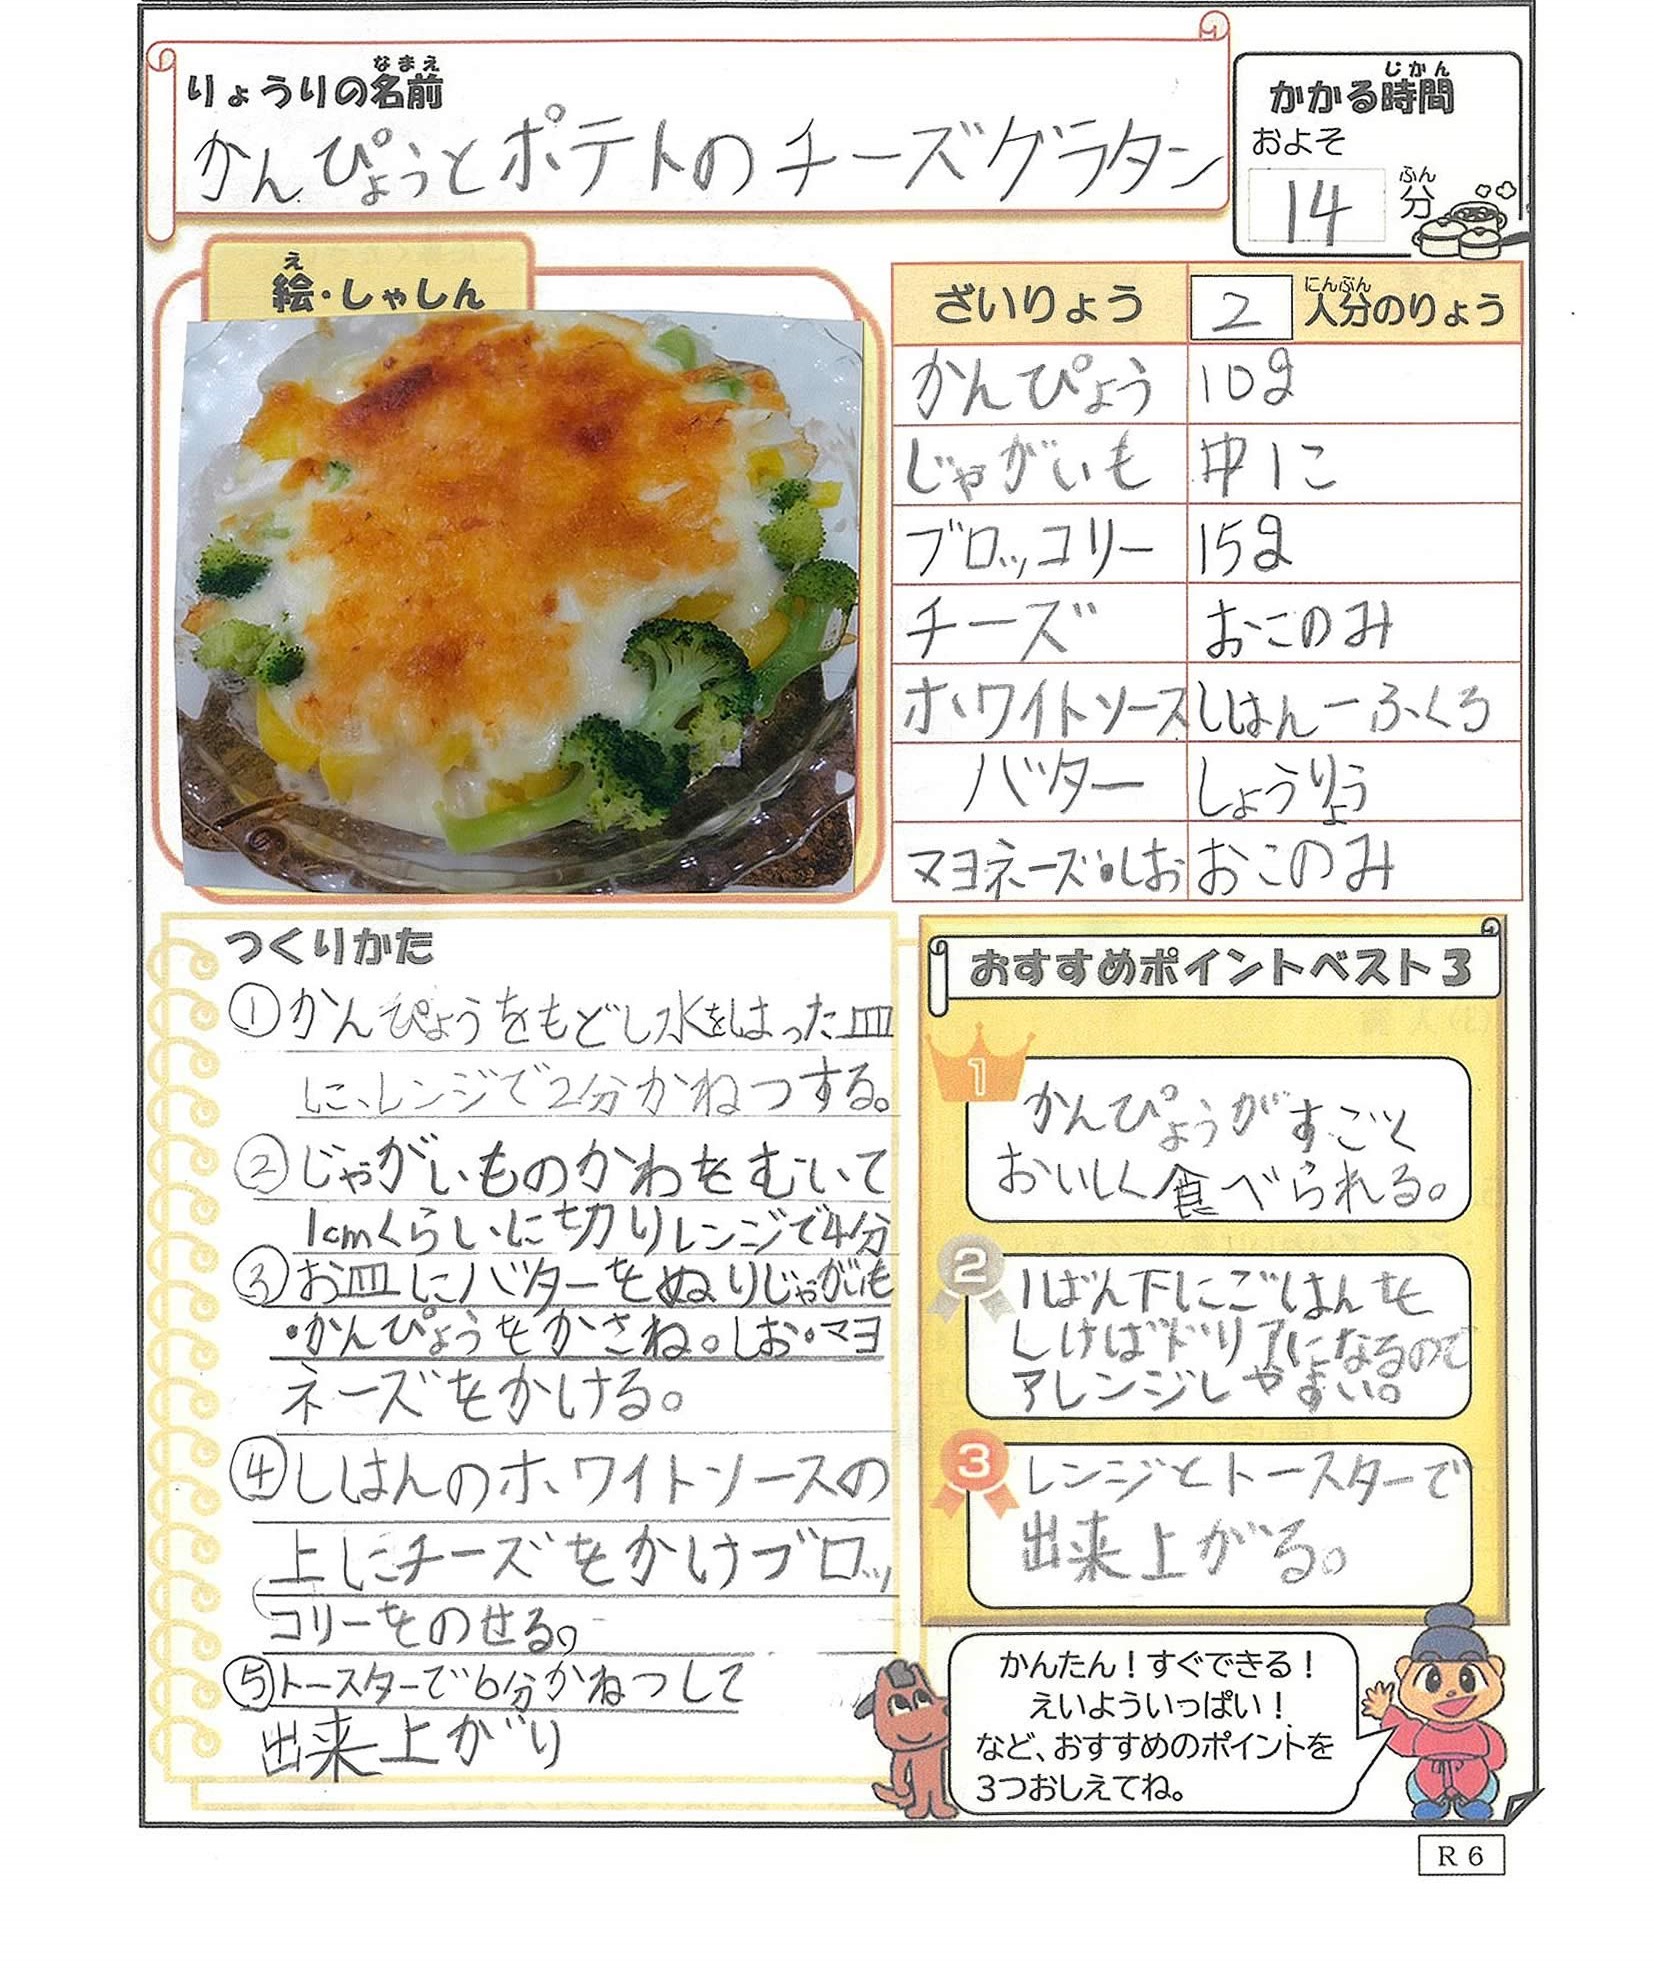 りょうりの名前
なまえ
かんぴょうとポテトのチーズグラタン
かかる時間
じかん
およそ
14分
ふん
絵・しゃしん
え
ざいりょう 2 人分のりょう
にんぶん
かんぴょう 10g
じゃがいも 中1こ
ブロッコリー 15g
チーズ おこのみ
ホワイトソース しはん一ふくろ
バター しょうりょう
マヨネーズ・しお おこのみ
つくりかた
①かんぴょうをもどし水をはった皿
に、レンジで2分かねつする。
②じゃがいものかわをむいて
1cmくらいに切りレンジで4分
③お皿にバターをぬりじゃがいも
・かんぴょうをかさね。しお・マヨ
ネーズをかける。
④しはんのホワイトソースの
上にチーズをかけブロッ
コリーをのせる。
⑤トースターで6分かねつして
出来上がり
おすすめポイントベスト3
1
かんぴょうがすごく
おいしく食べられる。
2
1ばん下にごはんを
しけばドリアになるので
アレンジしやすい。
3
レンジとトースターで
出来上がる。
かんたん！すぐできる！
えいよういっぱい！
など、おすすめのポイントを
3つおしえてね。
R6